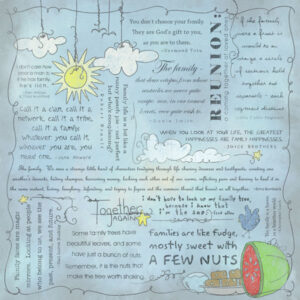 You don't choose your family.
They are God's gift to you,
as you are to them.
Desmond Tutu
If the family
were a fruit it
would be an
orange, a circle
of sections, held
together but
separable - each
segment distinct.
REUNION:
The family
I don't care how
poor a man is; if
he has family,
he's rich.
Family life is a bit like a
Call it a clan, call it a
network, call it a tribe,
call it a family.
Whatever you call it,
whoever you are, you
need one. - Jane Howard
WHEN YOU LOOK AT YOUR LIFE, THE GREATEST
HAPPINESSES ARE FAMILY HAPPINESSES.
JOYCE BROTHERS
The family. We were a strange little band of characters trudging through life sharing diseases and toothpaste, coveting one
another's desserts, hiding shampoo, borrowing money, locking each other out of our rooms, inflicting pain and kissing to heal it in
the same instant, loving, laughing, defending, and trying to figure out the common thread that bound us all together.
Together
AGAIN
I don't have to look up my family tree,
because I know that
I'm the sap.
Some family trees have
beautiful leaves, and some
have just a bunch of nuts.
Remember, it is the nuts that
make the tree worth shaking.
Families are like fudge,
mostly sweet with
A FEW NUTS
Family faces are magic
mirrors. Looking at people
who belong to us, we see the
past, present, and future.